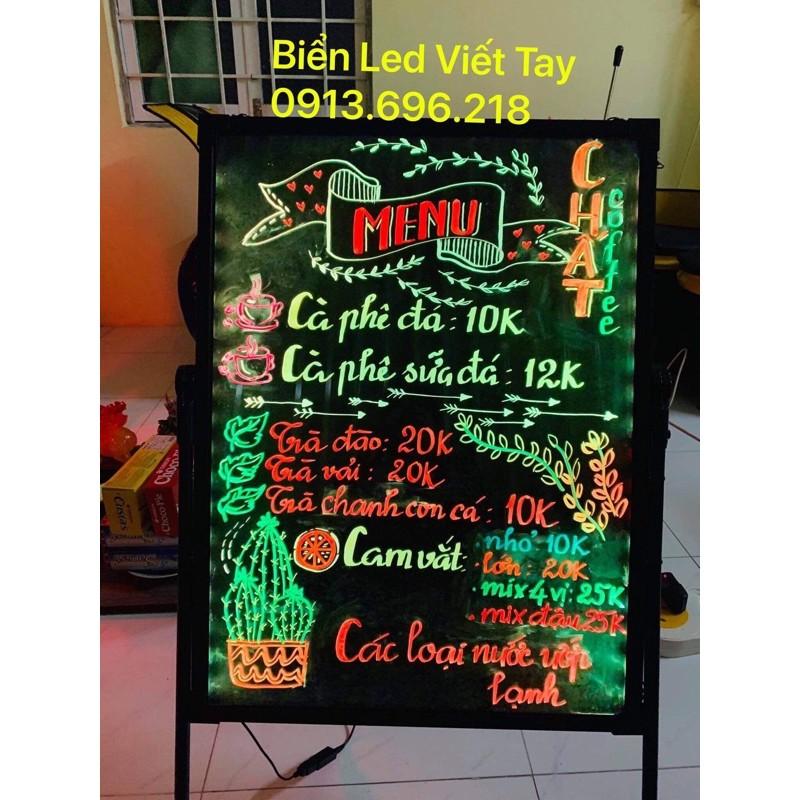 Biển Led Viết Tay
0913.696.218
MENU
CHẤT
coffee
Cà phê đá: 10K
Cà phê sữa đá: 12K
Trà đào: 20K
Trà vải: 20K
Trà chanh con cá: 10K
Cam vắt:
nhỏ 10K
lớn: 20K
mix 4 vị: 25K
mix dâu 25K
Các loại nước ướp
lạnh
Custas
Choco Pie